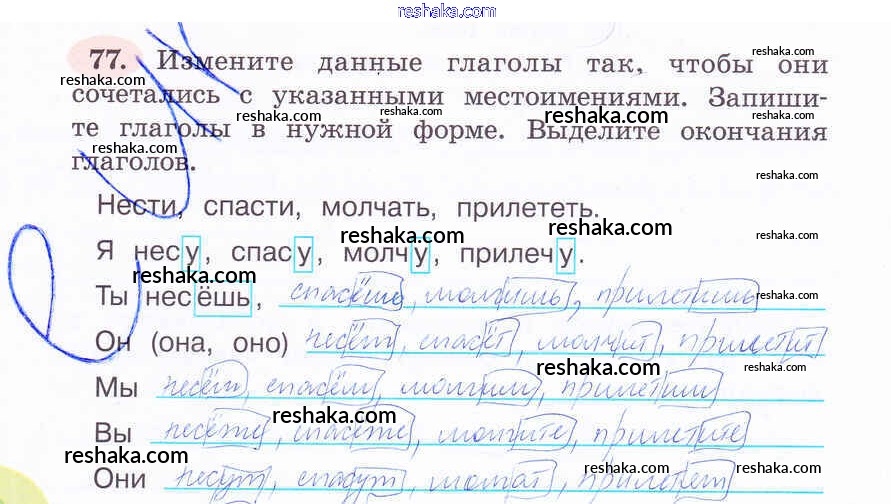 reshaka.com
77. Измените данные глаголы так, чтобы они
reshaka.com
reshaka.com
сочетались с указанными местоимениями. Запиши-
reshaka.com
те глаголы в нужной форме. Выделите окончания
reshaka.com reshaka.com
глаголов.
reshaka.com
Нести, спасти, молчать, прилететь.
reshaka.com reshaka.com
Я несу, спасу, молчу, прилечу.
reshaka.com
Ты несёшь, спасёшь, молчишь, прилетишь
reshaka.com
Он (она, оно) несёт, спасёт, молчит, прилетит
reshaka.com reshaka.com
Мы несём, спасём, молчим, прилетим
reshaka.com reshaka.com
Вы несёте, спасёте, молчите, прилетите
reshaka.com
Они несут, спасут, молчат,
reshaka.com reshaka.com reshaka.com